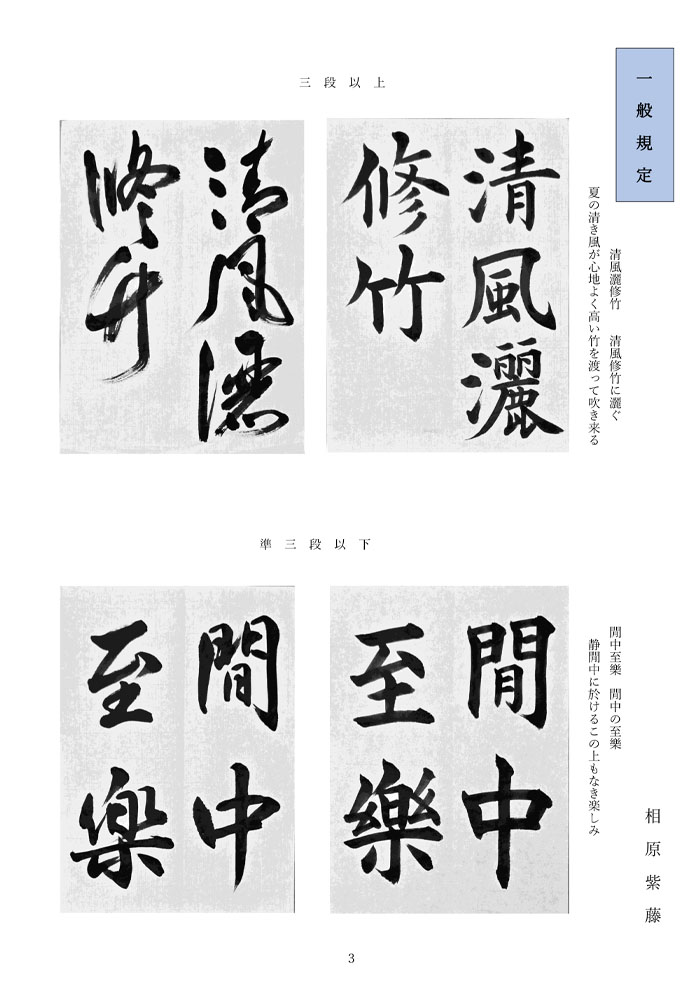 一般規定
三段以上
清風灑修竹　清風修竹に灑ぐ
夏の清き風が心地よく高い竹を渡って吹き来る
清風灑
修竹
清風灑
修竹
準三段以下
閒中至樂　閒中の至樂
静閒中に於けるこの上もなき楽しみ
閒中
至樂
閒中
至楽
相原紫藤
3